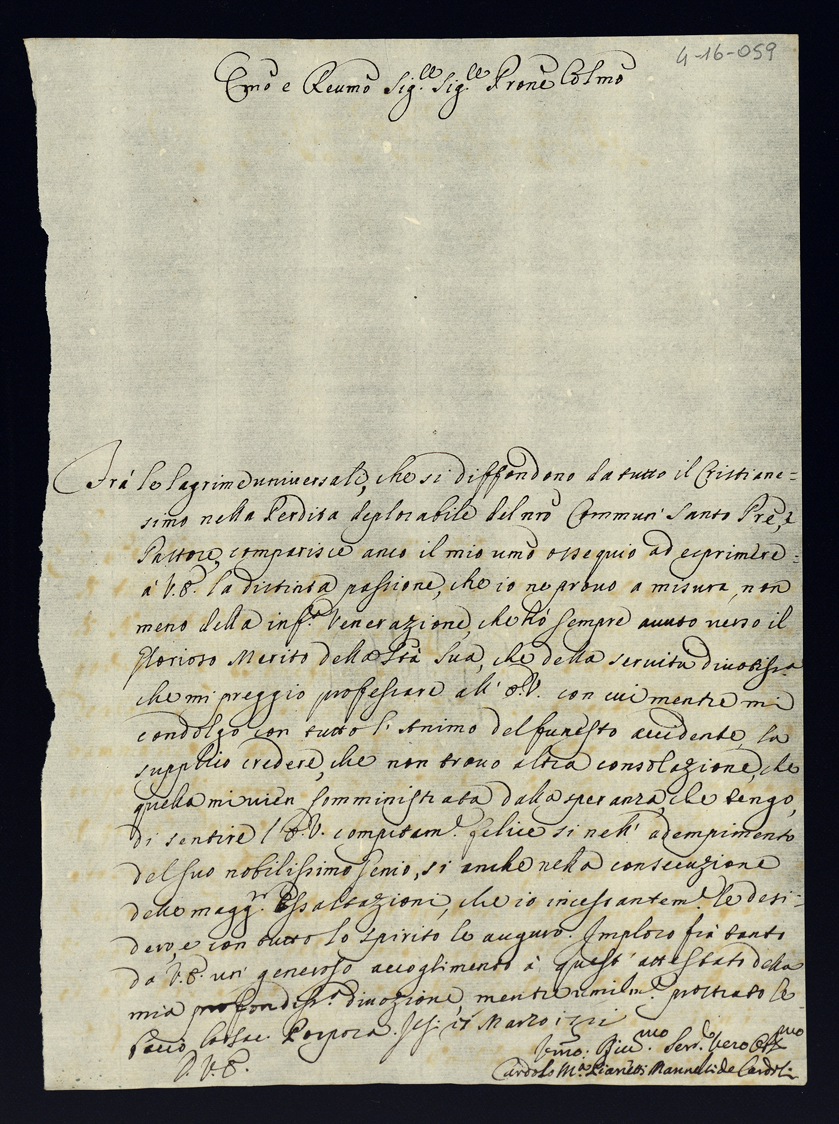 4-16-059
Emo e Reumo Sig.re Sig.re Prone Colmo
Frà le lagrime universali, che si diffondono da tutto il Cristiane=
simo nella Perdita deplorabile del nro Commun' Santo Pre, e
Pastore, comparisce anco il mio umo ossequio ad esprimere
à V.E. la distinta passione, che io ne provo a misura, non
meno della inf.ta Venerazione, che hò sempre avuto verso il
glorioso Merito della Stà Sua, che della servitù divotiss.a
che mi preggio professare all' E.V. con cui mentre mi
condolgo con tutto l'Animo del funesto accidente, la
supplico credere, che non trovo altra consolazione, che
quella mi vien somministrata dalla speranza, che tengo,
di sentire l'E.V. compitam.e felice si nell' adempimento
del suo nobilissimo Genio, si anche nella consecuzione
delle magg.ri Essaltazioni, che io incessantem.e le desi=
dero, e con tutto lo spirito le auguro. Imploro frà tanto
da V.E. un' generoso accoglimento à quest' attestato della
mia profondiss.a divozione, mentre umilm.e prostrato le
bacio la Sac. Porpora. Jesi 17 Marzo 1721
D.V.E.
Vmo. Serv.e vero
de